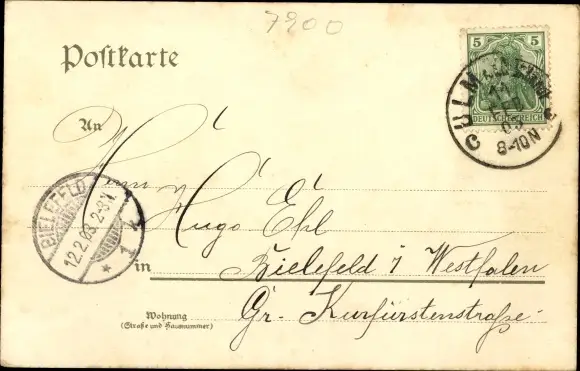 7900
Postkarte
5 5
DEUTSCHES REICH
CULM
03
8-10N
An
Herrn
Hugo Ehl
BIELEFELD
12.2.03.2-3N.
* 1
in Bielefeld i Westfalen
Gr. Kurfürstenstraße
Wohnung
(Straße und Hausnummer)